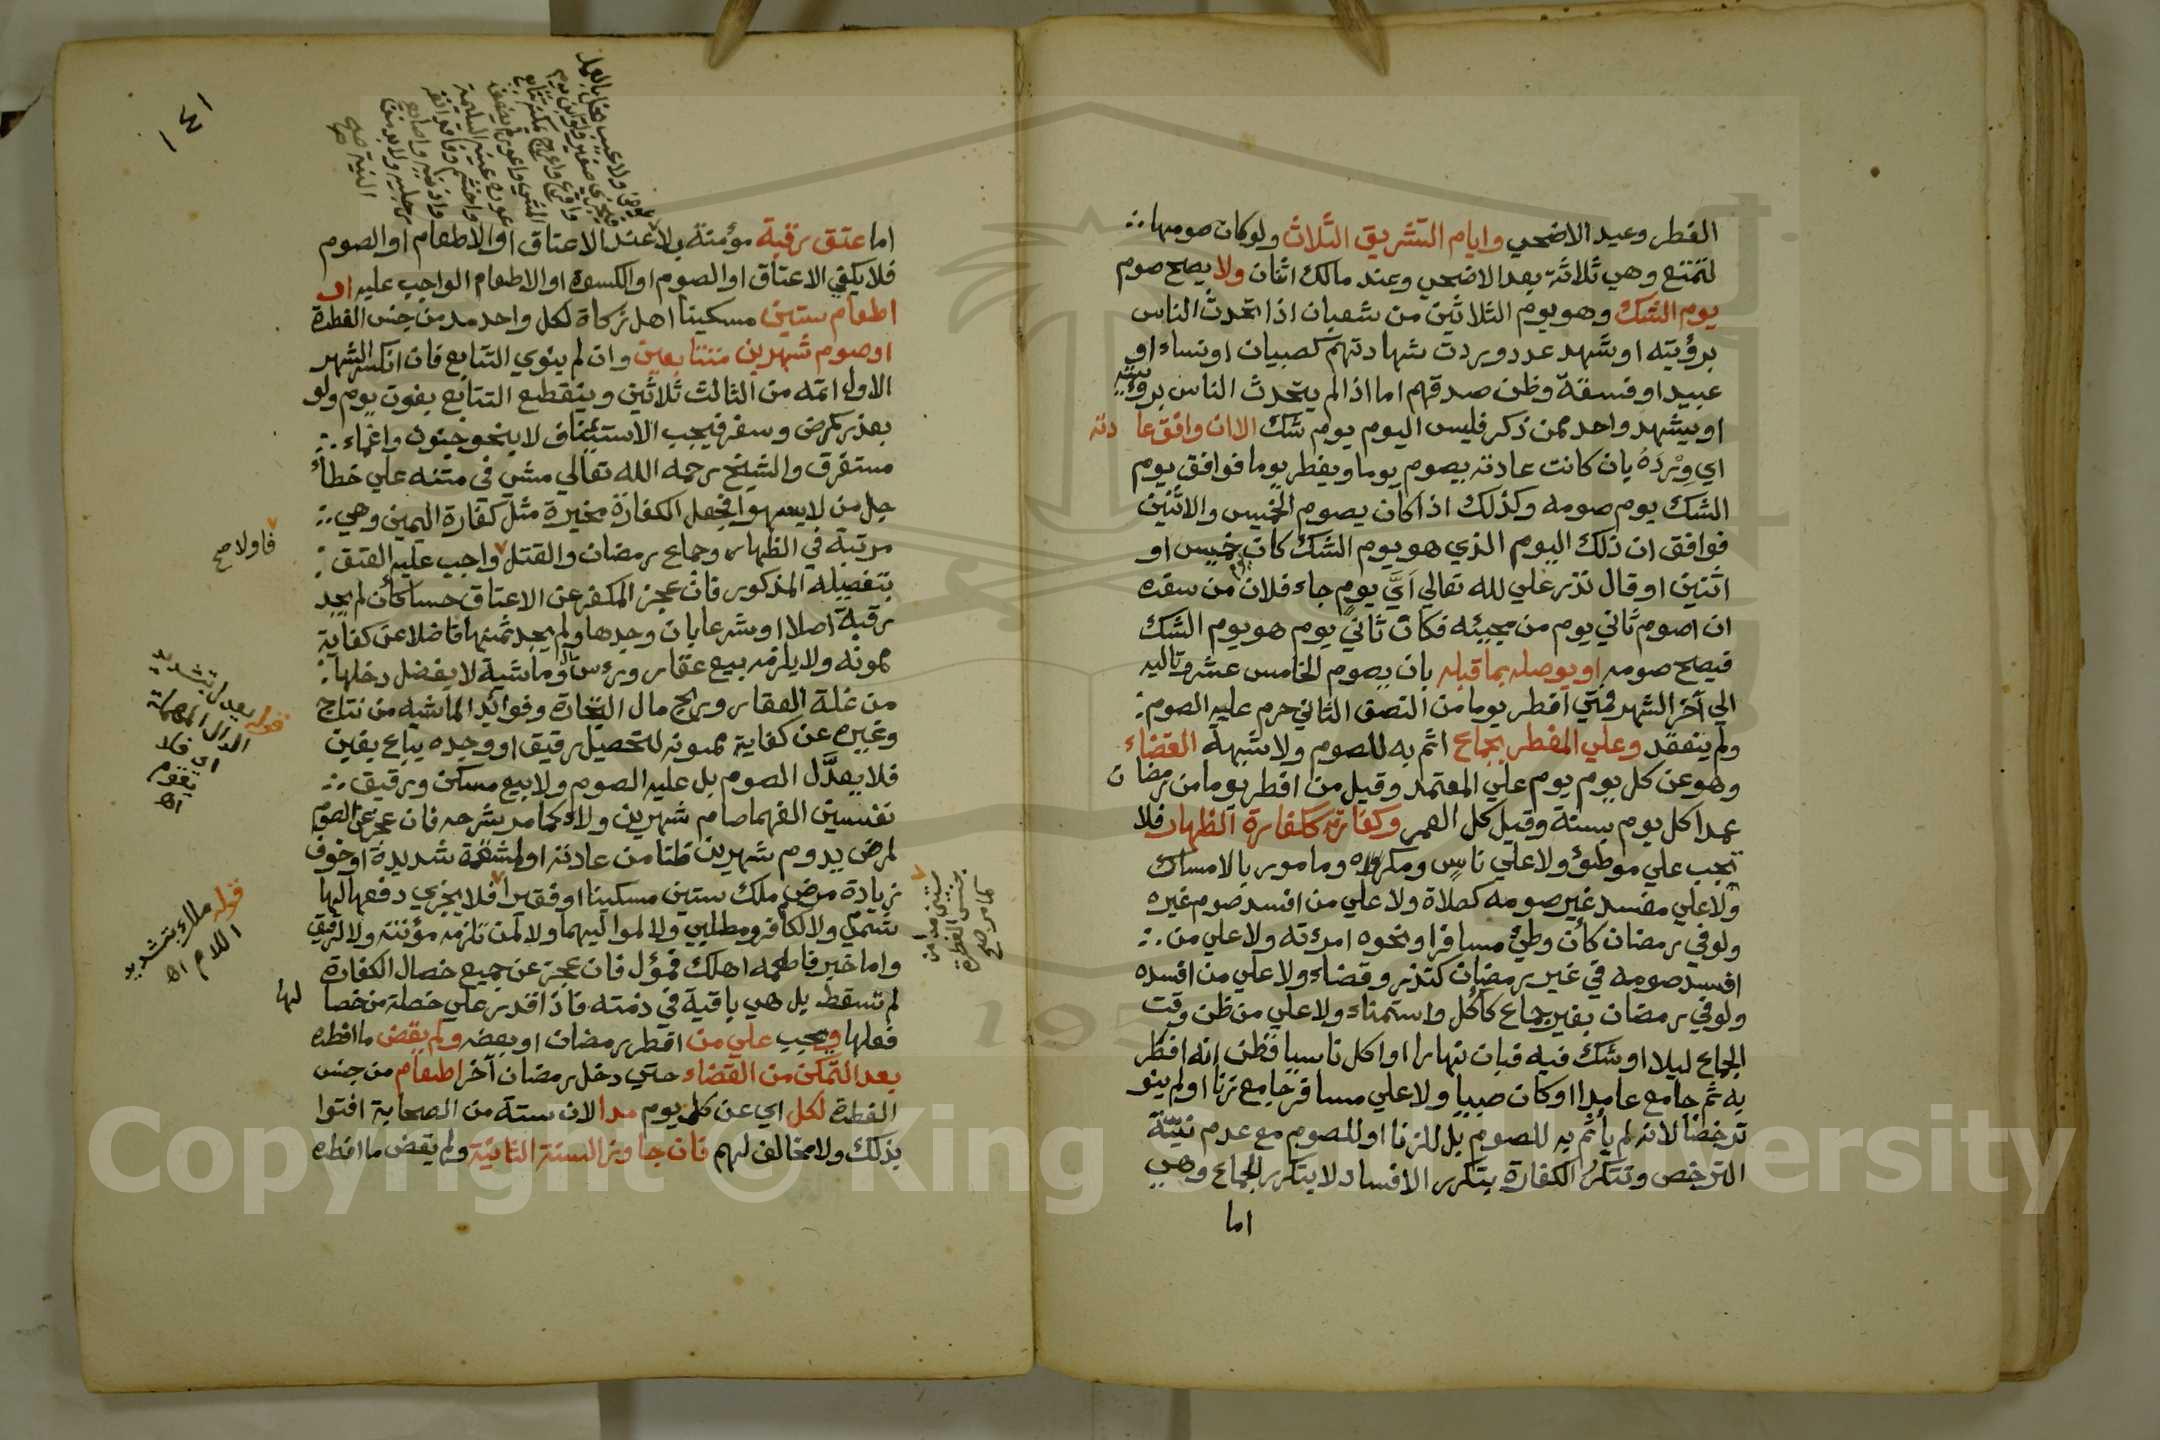 الفطر وعيد الاضحي وايام التشريق الثلاث ولو كان صومها
لتمتع وهي ثلاثة بعد الاضحي وعند مالك اثنان ولا يصح صوم
يوم الشك وهو يوم الثلاثين من شعبان اذا تحدث الناس
برؤيته او شهد عدد وردت شهادتهم كصبيان او نساء او
عبيد او فسقة وظن صدقهم اما اذا لم يتحدث الناس برؤيته
او يشهد واحد ممن ذكر فليس اليوم يوم شك الا ان وافق عا دته
اي ورده بان كانت عادته يصوم يوما ويفطر يوما فوافق يوم
الشك يوم صومه وكذلك اذا كان يصوم الخميس والاثنين
فوافق ان ذلك اليوم الذي هو يوم الشك كان خميس او
اثنين او قال نذر علي لله تعالي ايَّ يوم جاء فلان من سفره
ان اصوم ثاني يوم من مجيئه فكان ثاني يوم هو يوم الشك
فيصح صومه او يوصله بما قبله بان يصوم الخامس عشر وتاليه
الي آخر الشهر فمتي افطر يوما من النصف الثاني حرم عليه الصوم
ولم ينعقد وعلي المفطر بجماع اثم به للصوم ولا شبهة القضاء
وهو عن كل يوم يوم علي المعتمد وقيل من افطر يوما من رمضان
عمدا كل يوم بسنة وقيل كل العمر وكفارته ككفارة الظهار فلا
تجب علي موطؤ ولا علي ناسٍ ومكره ومامور بالامساك
ولا علي مفسد غير صومه كصلاة ولا علي من افسد صوم غيره
ولو في رمضان كأن وطئ مسافر او نحوه امرته ولا علي من
افسد صومه في غير رمضان كنذر وقضاء ولا علي من افسده
ولو في رمضان بغير جماع كاكل واستمناء ولا علي من ظن وقت
الجماع ليلا او شك فيه فبان نهارا او اكل ناسيا فظن انه افطر
به ثم جامع عامدا او كان صبيا ولا علي مسافر جامع زنا او لم ينو
ترخصا لانه لم يأثم به للصوم بل للزنا او للصوم مع عدم نيّة
الترخص وتتكرر الكفارة بتكرر الافساد لا بتكرر الجماع وهي
اما
١٤١
اما عتق رقبة مؤمنة بلا عند الاعتاق او الاطعام او الصوم
فلا يكفي الاعتاق او الصوم او الكسوة او الاطعام الواجب عليه او
اطعام ستين مسكينا اهل زكاة لكل واحد مد من جنس الفطرة
او صوم شهرين متتابعين وان لم ينوي التتابع فان انكسر الشهر
الاول اتمه من الثالث ثلاثين وينقطع التتابع بفوت يوم ولو
بعذر كمرض وسفر فيجب الاستئناف لا بنحو جنون واغماء
مستغرق والشيخ رحمه الله تعالي مشي في متنه علي خطأ
جل من لا يسهو فجعل الكفارة مخيرة مثل كفارة اليمين وهي
مرتبة في الظهار وجماع رمضان والقتل واجب عليه العتق
بتفصيله المذكور فان عجز المكفر عن الاعتاق حسا كأن لم يجد
رقبة اصلا او شرعا بان وجدها ولم يجد ثمنها فاضلا عن كفاية
ممونه ولا يلزمه بيع عقار ورءس مال وماشية لا يفضل دخلها
من غلة العقار وربح مال التجارة وفوائد الماشيه من نتاج
وغيره عن كفاية ممونه لتحصيل رقيق او وجده يباع بغبن
فلا يعدَّل الصوم بل عليه الصوم ولا بيع مسكن ورقيق
نفيسين الفهما صام شهرين ولاء كما مر شرحه فان عجز عن الصوم
لمرض يدوم شهرين ظنا من عادته او لمشقة شديدة او خوف
زيادة مرض ملك ستين مسكينا او فقيرا فلا يجزي دفعها لها
شمي ولا لكافر ومطلبي ولا لمواليهما ولا لمن تلزمه مؤنته ولا لرقيق
واما خبر فاطعمه اهلك فمؤل فان عجز عن جميع خصال الكفارة
لم تسقط بل هي باقية في ذمته فاذا قدر علي خصلة من خصا لها
فعلها ويجب علي من افطر رمضان او بعضه ولم يقض ما افطره
بعد التمكن من القضاء حتي دخل رمضان آخر اطعام من جنس
الفطرة لكل اي عن كل يوم مد الان ستة من الصحابة افتوا
بذلك ولا مخالف لهم فان جاوز السنة الثانية ولم يقض ما افطره
فاولا صح
قوله يعدل بتشديد
الدال المهملة
اي فلا
يقوم
اه
قوله ملاء بتشديد
اللام اه
ستين مدا من
جنس الفطرة
كما مر صح
Copyright © King Saud University
195